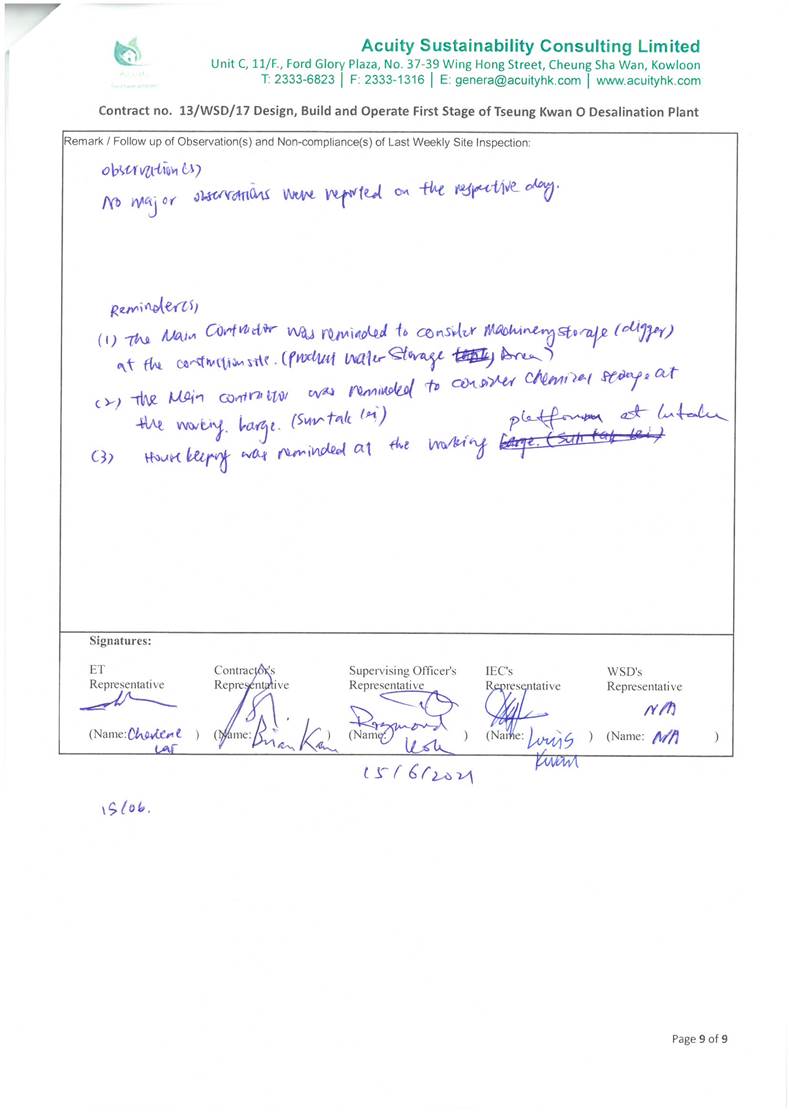 Acuity Sustainability Consulting Limited
Unit C, 11/F., Ford Glory Plaza, No. 37-39 Wing Hong Street, Cheung Sha Wan, Kowloon
T: 2333-6823 | F: 2333-1316 | E: genera@acuityhk.com | www.acuityhk.com
Contract no. 13/WSD/17 Design, Build and Operate First Stage of Tseung Kwan O Desalination Plant
Remark / Follow up of Observation(s) and Non-compliance(s) of Last Weekly Site Inspection:
Observation(s)
No major observations were reported on the respective day.
Reminder(s)
(1) The Main Contractor was reminded to consider Machinery storage (digger)
at the construction site. (Product Water Storage Area)
(2) The Main contractor was reminded to consider chemical storage at
the working barge. (Sun tak lei)
platform at Intake
(3) House keeping was reminded at the working barge. (Sun tak lei)
Signatures:
ET Contractor's Supervising Officer's IEC's WSD's
Representative Representative Representative Representative Representative
N/A
(Name: ) (Name: Brian Kam ) (Name: Raymond ) (Name: Louis ) (Name: N/A )
Kwan
15/6/2021
15/06.
Page 9 of 9